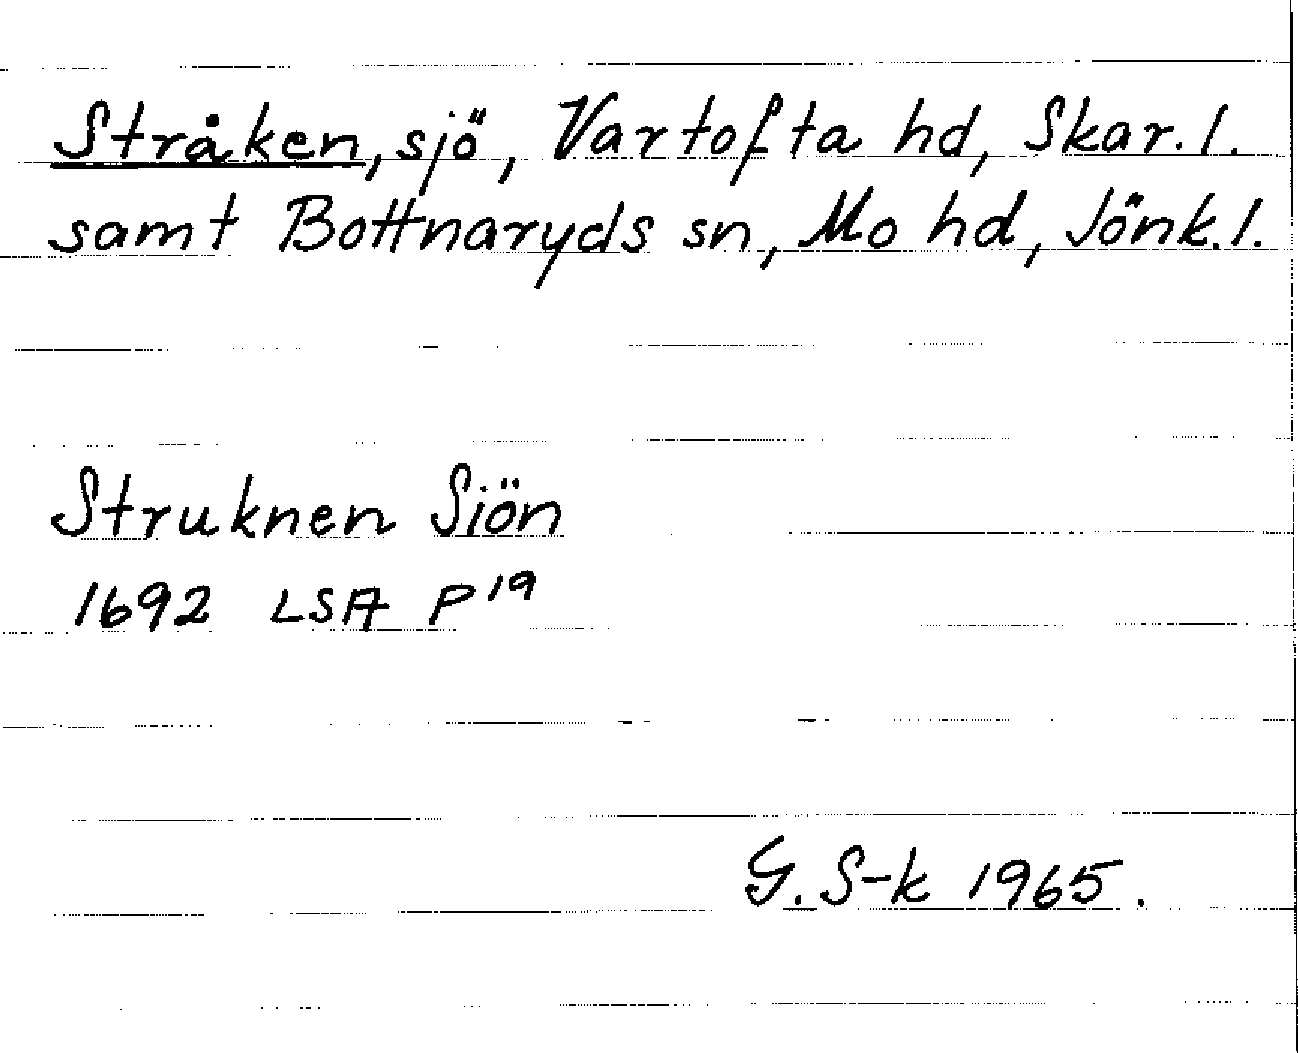 Stråken, sjö, Vartofta hd, Skar. l.
samt Bottnaryds sn, Mo hd, Jönk. l.
Struknen Siön
1692 LSA P19
G. S-k 1965.